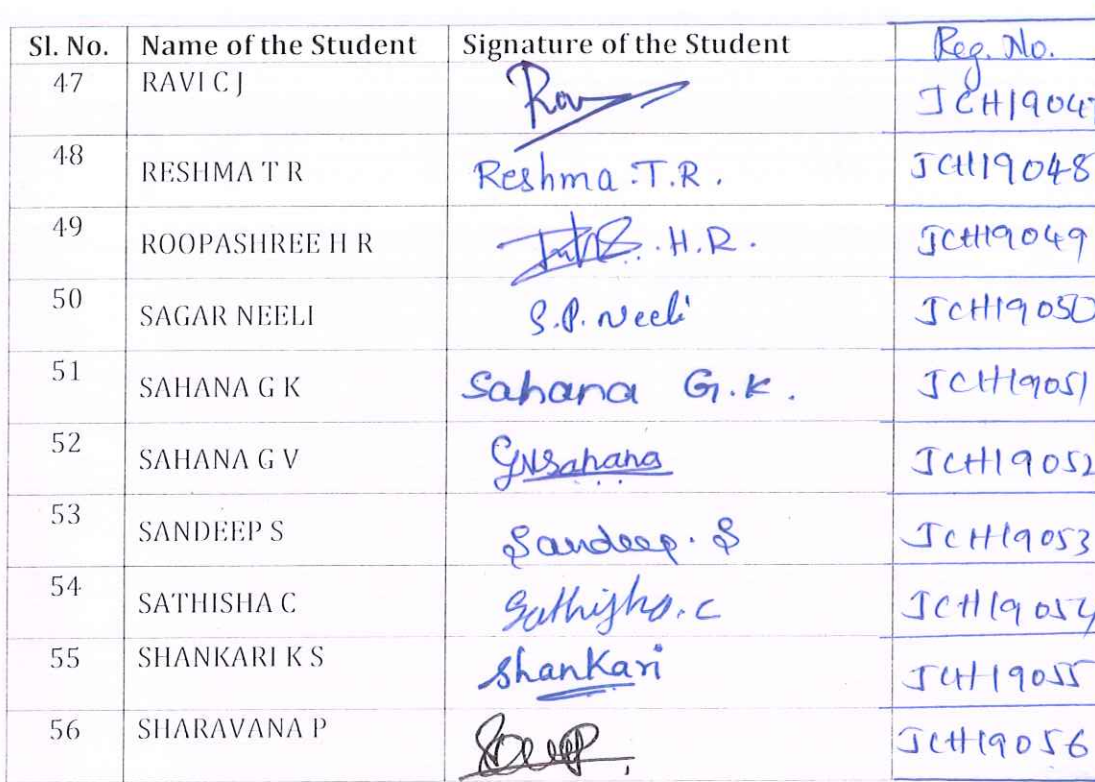 Sl. No. Name of the Student Signature of the Student Reg. No.
47 RAVI C J Rav JCH19047
48 RESHMA T R Reshma .T.R. JCH19048
49 ROOPASHREE H R .H.R. JCH19049
50 SAGAR NEELI S.P. Neeli JCH19050
51 SAHANA G K Sahana G.K. JCH19051
52 SAHANA G V GVSahana JCH19052
53 SANDEEP S Sandeep. S JCH19053
54 SATHISHA C Sathisha.C JCH19054
55 SHANKARI K S Shankari JCH19055
56 SHARAVANA P JCH19056